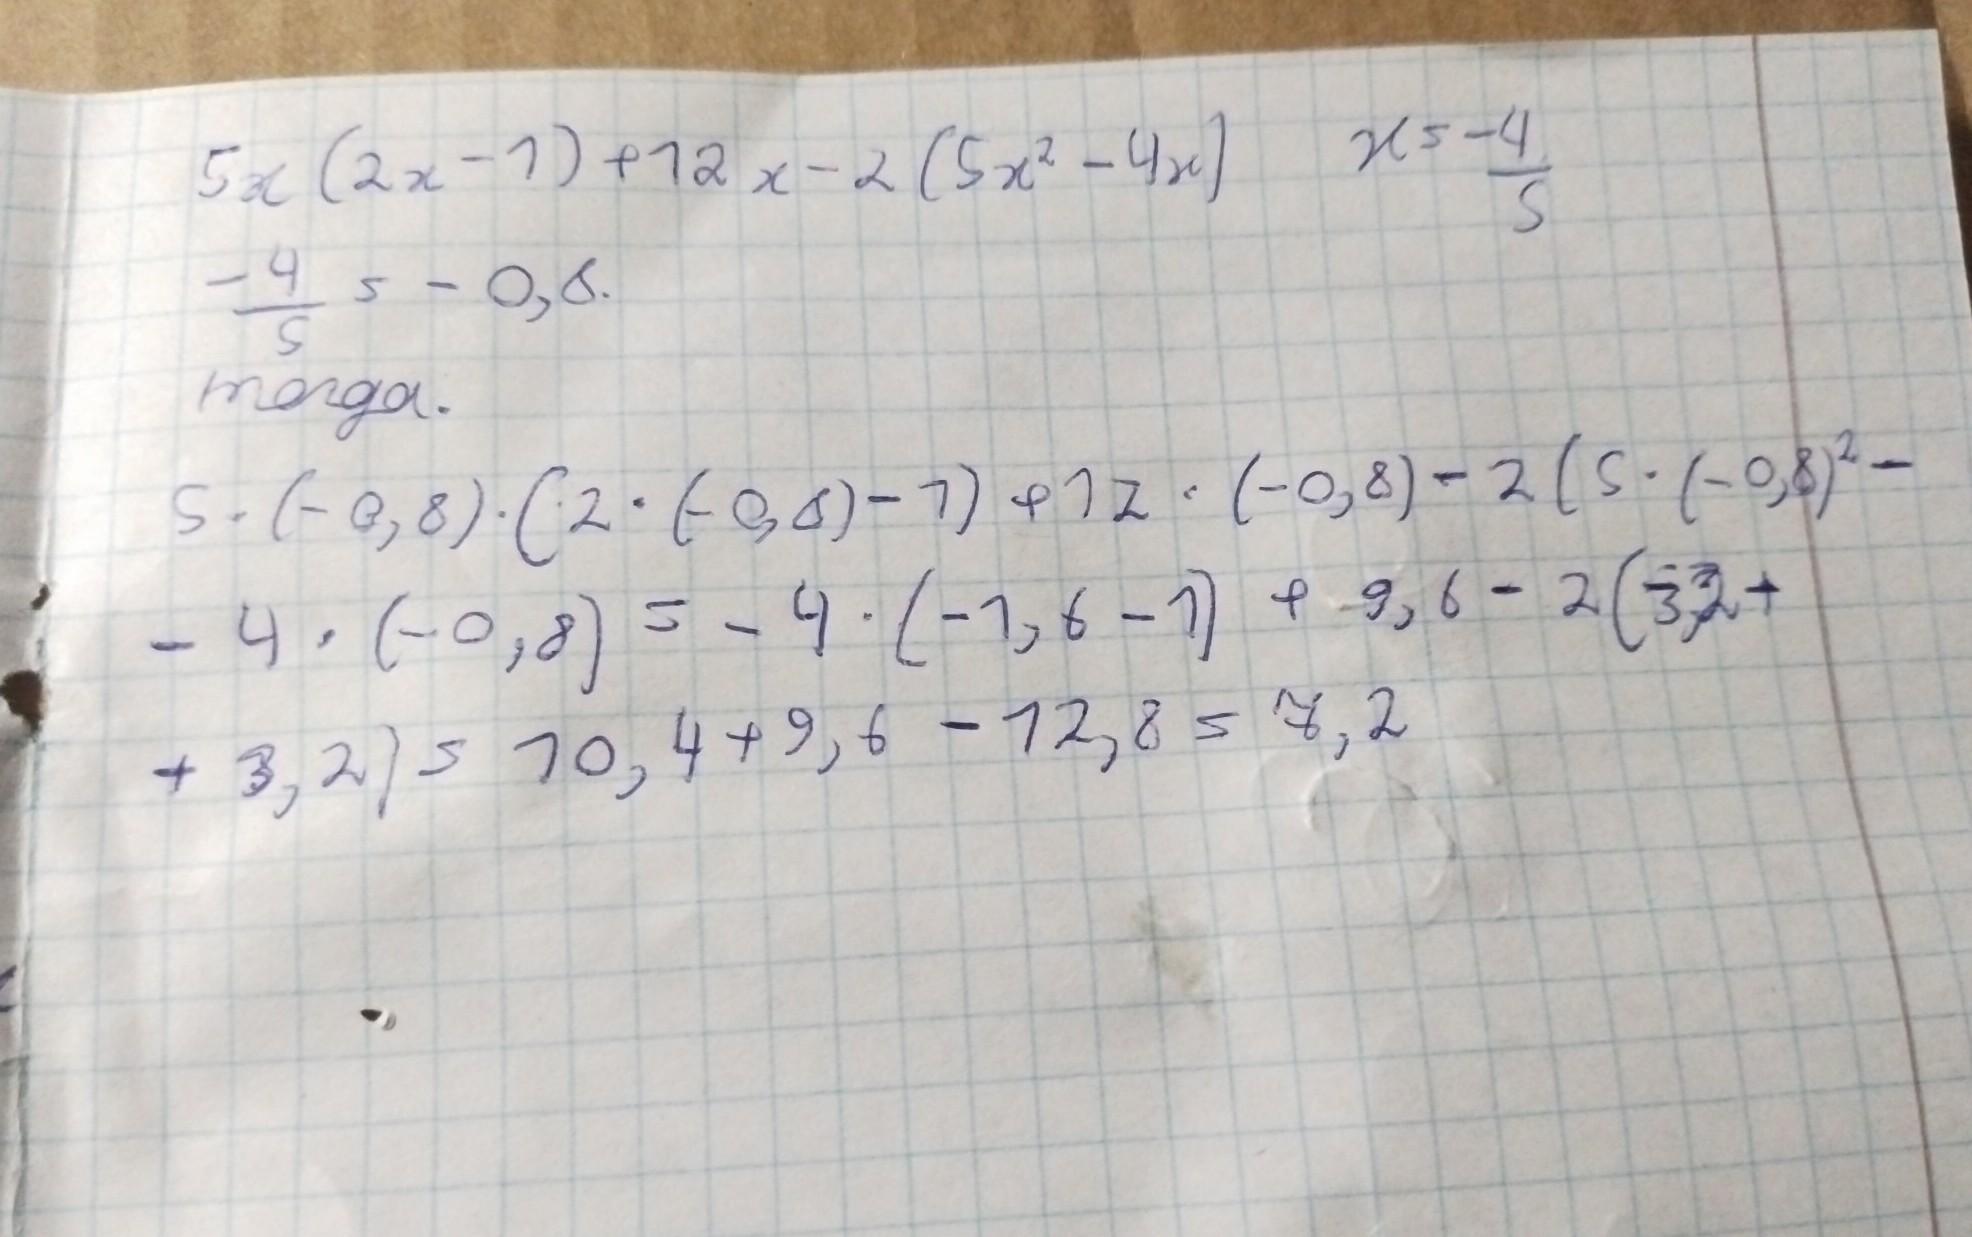 5x(2x-1)+12x-2(5x²-4x) x=-4/5
-4/5 = -0,8.
тогда.
5·(-0,8)·(2·(-0,8)-1)+12·(-0,8)-2(5·(-0,8)²-
-4·(-0,8)=-4·(-1,6-1)+9,6-2(3,2+
+3,2)=10,4+9,6-12,8=7,2